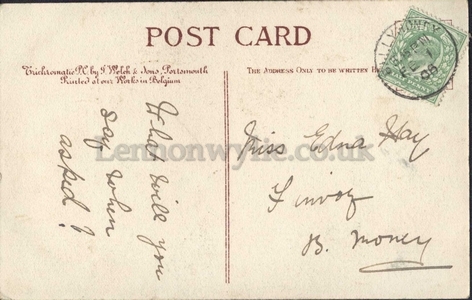 POST CARD
Trichromatic P.C. by J. Welch & Sons, Portsmouth
Printed at our Works in Belgium
THE ADDRESS ONLY TO BE WRITTEN HE
BALLYMONEY
08
What will you
say when
asked?
Miss Edna Hay
Finvoy
B. Money
Lennonwylie.co.uk